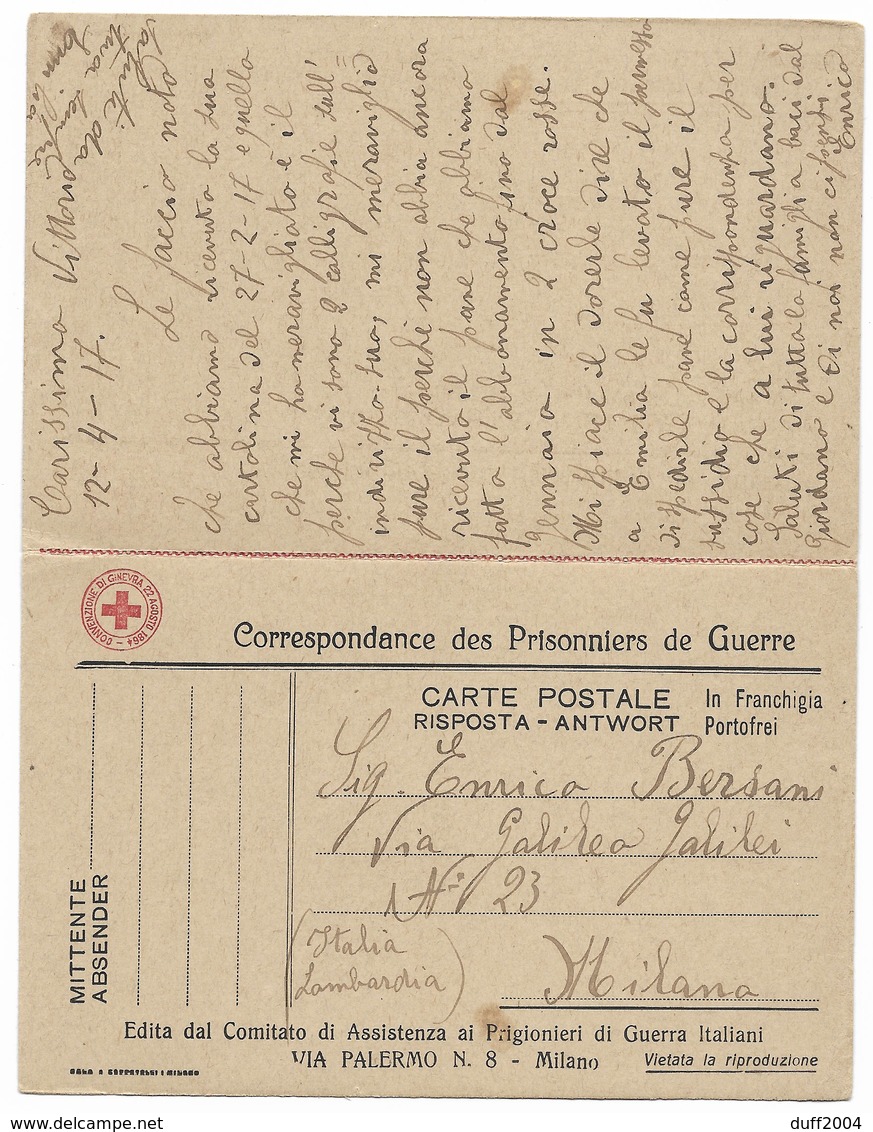 Carissimo Vittorio
12-4-17.
Le faccio noto
che abbiamo ricevuto la sua
cartolina del 27-2-17 e quello
che mi ha meravigliato è il
perche vi sono 2 calligrafie sull'
indirizzo suo, mi meraviglio
pure il perchè non abbia ancora
ricevuto il pane che abbiamo
fatto l'abbonamento fino dal
Gennaio in 2 croce rosse.
Mi spiace il doverle dire che
a Emilia le fu levato il permesso
di spedirle pane come pure il
sussidio e la corrispondenza per
cose che a lui riguardano.
Saluti di tutta la famiglia baci dal
Giordano e di noi non ci pensi
Enrico
saluti da
tua
CONVENZIONE DI GINEVRA 22 AGOSTO 1864
Correspondance des Prisonniers de Guerre
CARTE POSTALE
RISPOSTA - ANTWORT
In Franchigia
Portofrei
MITTENTE
ABSENDER
Sig. Enrico Bersani
Via Galileo Galilei
N° 23
(Italia
Lombardia)
Milano
Edita dal Comitato di Assistenza ai Prigionieri di Guerra Italiani
VIA PALERMO N. 8 - Milano
Vietata la riproduzione
www.delcampe.net
duff2004